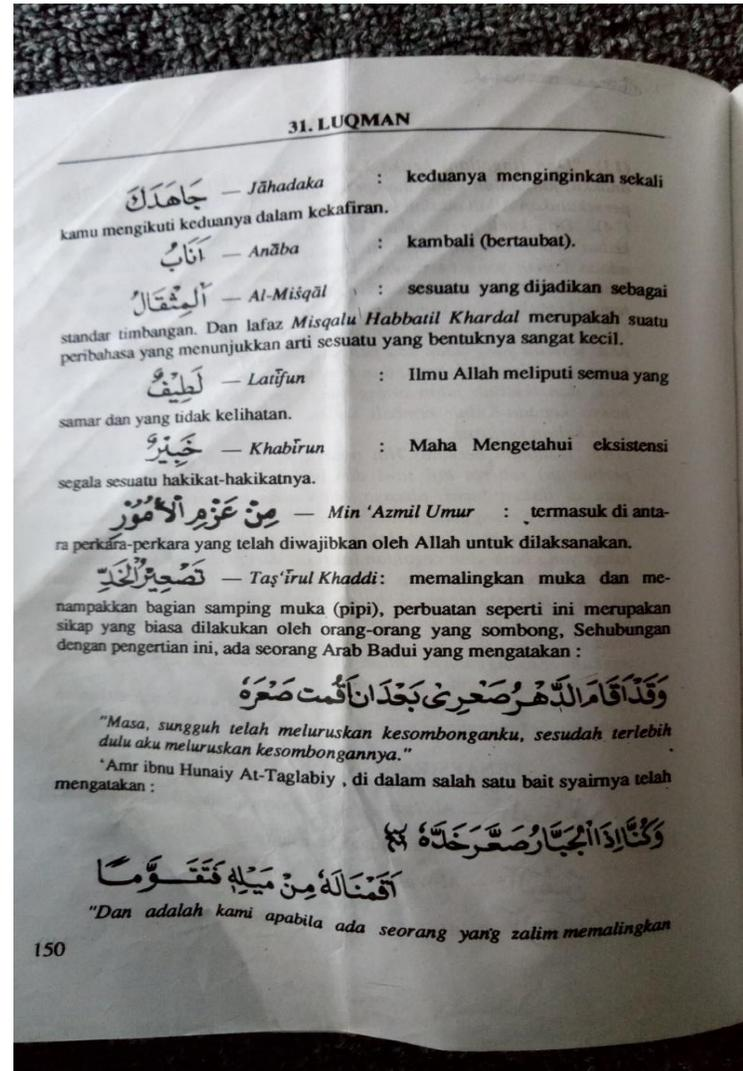 31. LUQMAN
جَاهَدَكَ — Jāhadaka : keduanya menginginkan sekali
kamu mengikuti keduanya dalam kekafiran.
اَنَابَ — Anāba : kambali (bertaubat).
اَلْمِثْقَالُ — Al-Miṡqāl : sesuatu yang dijadikan sebagai
standar timbangan. Dan lafaz Misqalu Habbatil Khardal merupakah suatu
peribahasa yang menunjukkan arti sesuatu yang bentuknya sangat kecil.
لَطِيْفٌ — Latīfun : Ilmu Allah meliputi semua yang
samar dan yang tidak kelihatan.
خَبِيْرٌ — Khabīrun : Maha Mengetahui eksistensi
segala sesuatu hakikat-hakikatnya.
مِنْ عَزْمِ الْاُمُوْرِ — Min ‘Azmil Umur : termasuk di anta-
ra perkara-perkara yang telah diwajibkan oleh Allah untuk dilaksanakan.
تَصْعِيْرُ الْخَدِّ — Taṣ‘īrul Khaddi : memalingkan muka dan me-
nampakkan bagian samping muka (pipi), perbuatan seperti ini merupakan
sikap yang biasa dilakukan oleh orang-orang yang sombong, Sehubungan
dengan pengertian ini, ada seorang Arab Badui yang mengatakan :
وَقَدْ اَقَامَ الدَّهْرُ صَعْرِىْ بَعْدَ اَنْ اَقَمْتُ صَعْرَهُ
"Masa, sungguh telah meluruskan kesombonganku, sesudah terlebih
dulu aku meluruskan kesombongannya."
‘Amr ibnu Hunaiy At-Taglabiy , di dalam salah satu bait syairnya telah
mengatakan :
وَكُنَّا اِذَا الْجَبَّارُ صَعَّرَ خَدَّهُ
اَقَمْنَا لَهُ مِنْ مَيْلِهِ فَتَقَوَّمَا
"Dan adalah kami apabila ada seorang yang zalim memalingkan
150